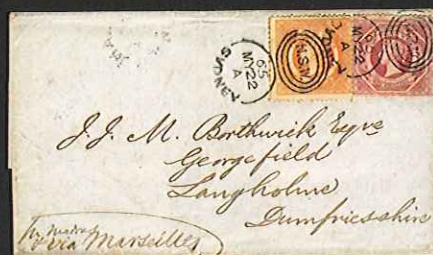 SYDNEY
A
MY 22
65
N.S.W
SYDNEY
A
MY 22
J. J. M. Borthwick Esqre
Georgefield
Langholme
Dumfriesshire
via Marseilles